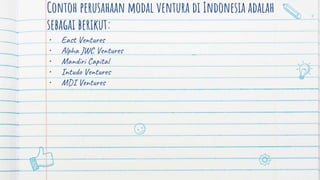 Contoh perusahaan modal ventura di Indonesia adalah
sebagai berikut:
• East Ventures
• Alpha JWC Ventures
• Mandiri Capital
• Intudo Ventures
• MDI Ventures